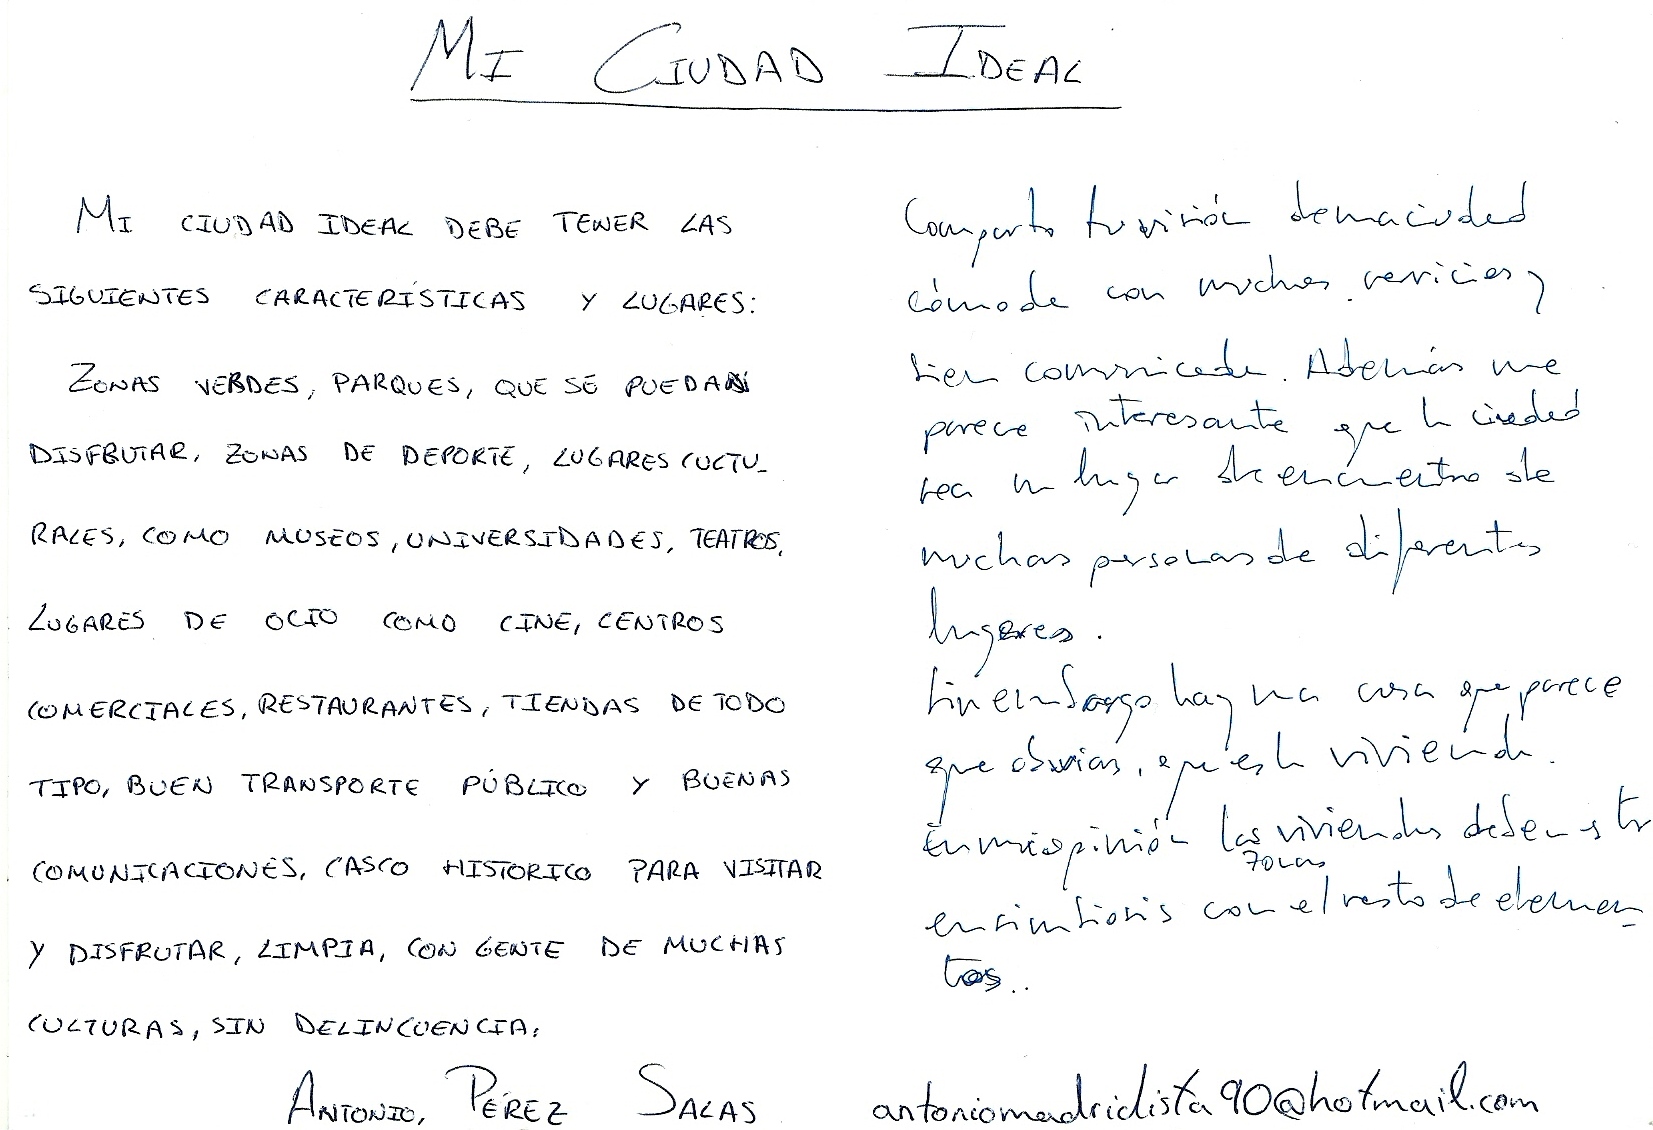 MI CIUDAD IDEAL
MI CIUDAD IDEAL DEBE TENER LAS
SIGUIENTES CARACTERÍSTICAS Y LUGARES:
ZONAS VERDES, PARQUES, QUE SE PUEDAN
DISFRUTAR, ZONAS DE DEPORTE, LUGARES CULTU-
RALES, COMO MUSEOS, UNIVERSIDADES, TEATROS,
LUGARES DE OCIO COMO CINE, CENTROS
COMERCIALES, RESTAURANTES, TIENDAS DE TODO
TIPO, BUEN TRANSPORTE PÚBLICO Y BUENAS
COMUNICACIONES, CASCO HISTORICO PARA VISITAR
Y DISFRUTAR, LIMPIA, CON GENTE DE MUCHAS
CULTURAS, SIN DELINCUENCIA.
Comparto tu visión de una ciudad
cómoda con muchos servicios y
bien comunicada. Además me
parece interesante que la ciudad
sea un lugar de encuentro de
muchas personas de diferentes
lugares.
Sin embargo hay una cosa que parece
que obvias, que es la vivienda.
En mi opinión las viviendas deben estar
zonas
en simbiosis con el resto de elemen-
tos..
ANTONIO, PÉREZ SALAS
antoniomadridista90@hotmail.com